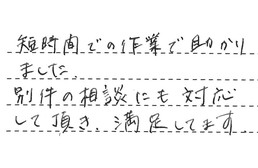 短時間での作業で助かり
ました。
別件の相談にも対応
して頂き、満足してます。